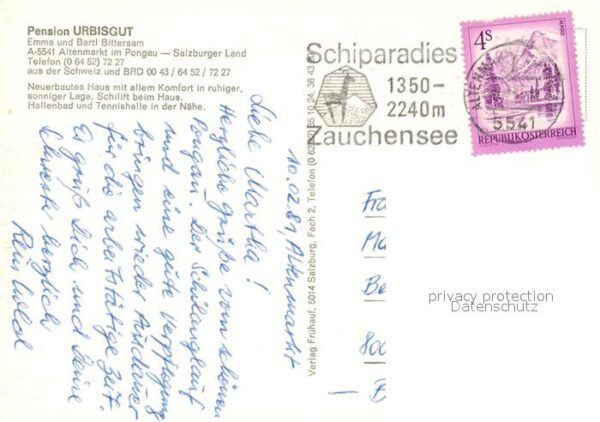 Pension URBISGUT
Emma und Bartl Bittersam
A-5541 Altenmarkt im Pongau — Salzburger Land
Telefon (0 64 52) 72 27
aus der Schweiz und BRD 00 43 / 64 52 / 72 27
Neuerbautes Haus mit allem Komfort in ruhiger,
sonniger Lage, Schilift beim Haus.
Hallenbad und Tennishalle in der Nähe.
10.02.81, Altenmarkt
Liebe Martha!
Herzliche Grüße vom schönen
Pongau. Der Schilanglauf
und eine gute Verpflegung
bringen wieder Ausdauer
für die arbeitstätige Zeit.
Es grüßt Dich und Deine
herzlich
Verlag Frühauf, 5014 Salzburg, Fach 2, Telefon
Schiparadies
1350-
2240m
Zauchensee
4S
REPUBLIK ÖSTERREICH
5541
Fra
Ma
Be
800
privacy protection
Datenschutz